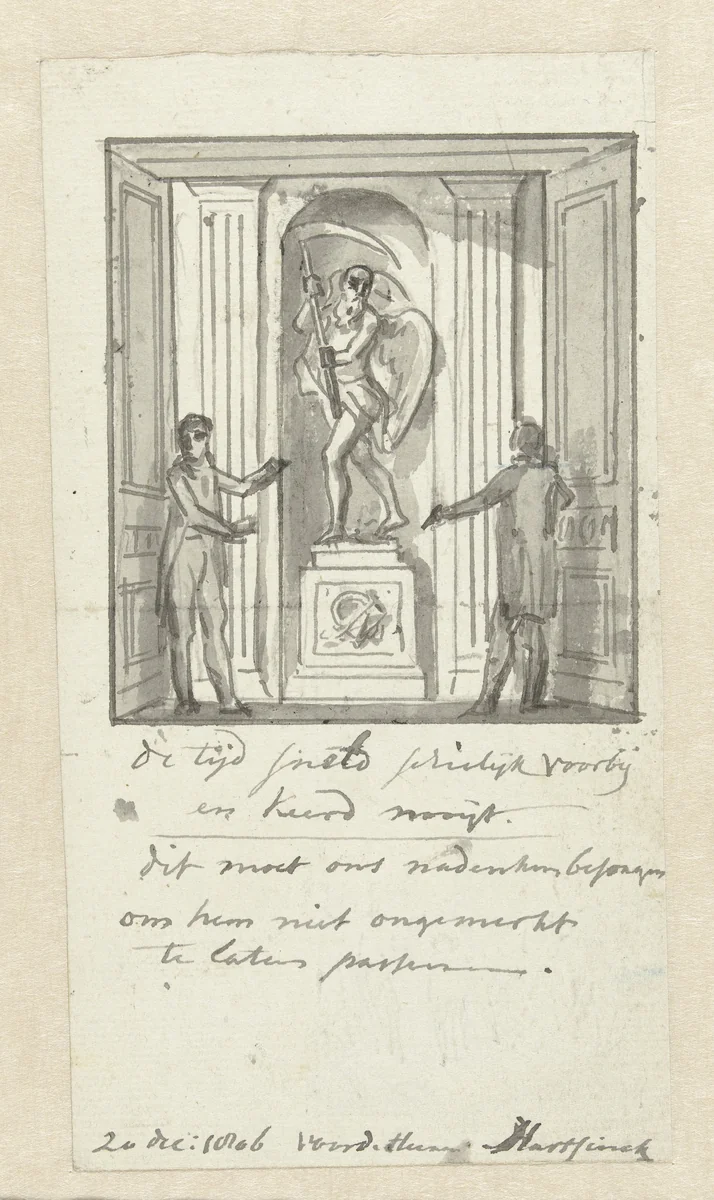 de tijd sneld schielijk voorbij
en keerd nooijt.
dit moet ons nadenken
om hem niet ongemerkt
te laten passeren.
20 dec: 1806 voor de Heer Hartsinck